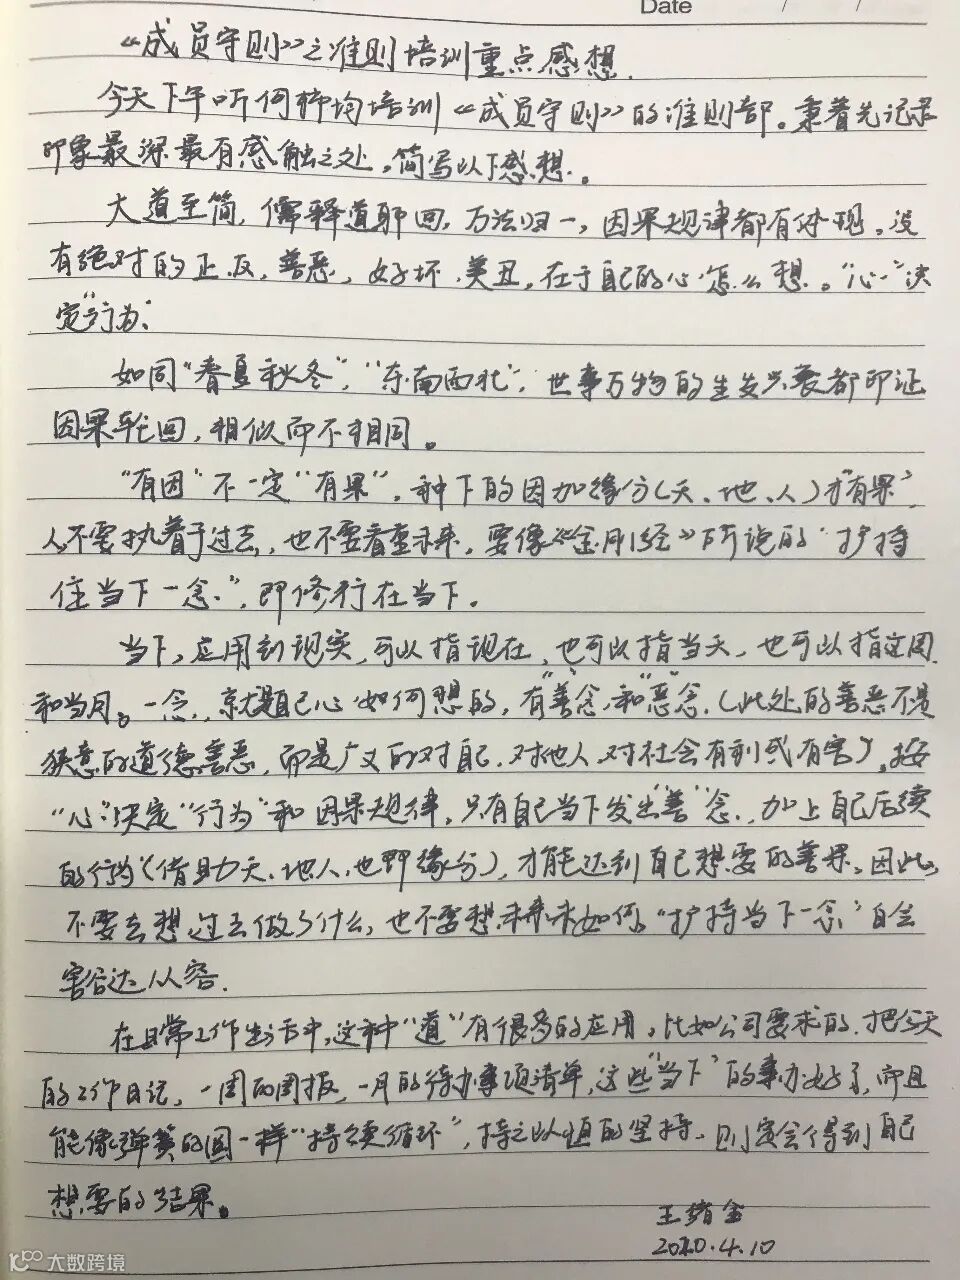 Date / /
《成员守则》之准则培训重点感想.
今天下午听何柿均培训《成员守则》的准则部。秉着先记录
印象最深最有感触之处,简写以下感想。
大道至简,儒释道耶回,万法归一,因果规律都有体现。没
有绝对的正反,善恶,好坏,美丑,在于自己的心怎么想。"心"决
定"行为".
如同"春夏秋冬","东南西北",世事万物的生发兴衰都印证
因果轮回,相似而不相同。
"有因"不一定"有果",种下的因加缘分(天、地、人)才"有果"
人不要执着于过去,也不要看重未来,要像《金刚经》所说的"护持
住当下一念",即修行在当下.
当下,应用到现实,可以指现在,也可以指当天,也可以指这周
和当月。一念,就是自己心如何想的,有"善"念和"恶"念.(此处的善恶不是
狭意的道德善恶,而是广义的对自己.对他人.对社会有利或有害)。按
"心"决定"行为"和因果规律,只有自己当下发出"善"念,加上自己后续
的行为(借助天、地、人,也即缘分),才能达到自己想要的善果。因此,
不要去想过去做了什么,也不要想未来如何,"护持当下一念"自会
豁达从容.
在日常工作生活中,这种"道"有很多的应用,比如公司要求的.把今天
的工作日记,一周的周报,一月的待办事项清单,这些"当下"的事办好了,而且
能像弹簧的圆一样"持续循环",持之以恒的坚持,则定会得到自己
想要的结果。
王绪金
2020.4.10
大数跨境